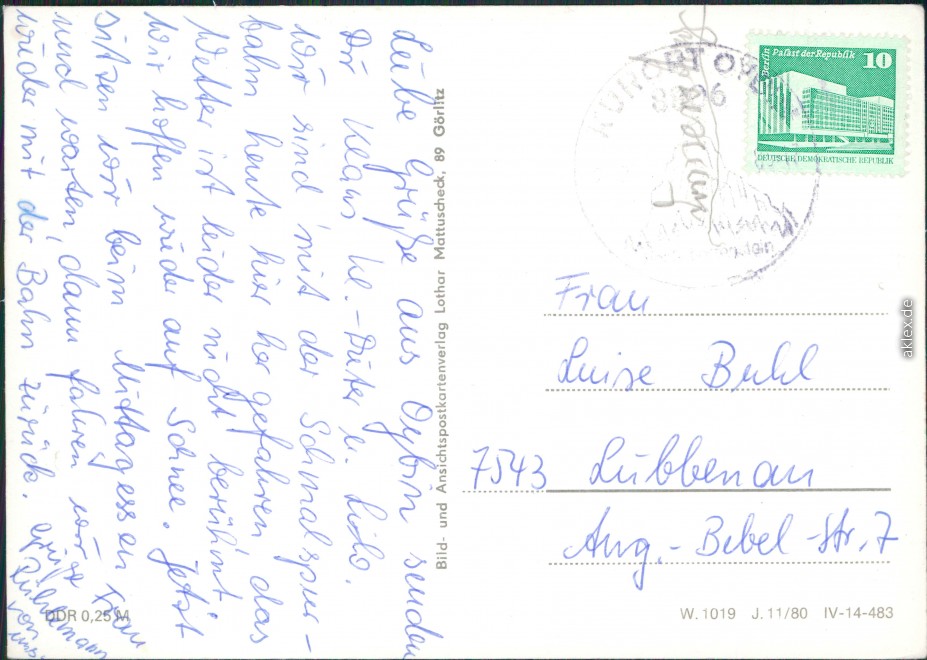 Liebe Grüße aus Oybin senden
Dir Klaus H.-Dieter u. Lilo.
Wir sind mit der Schmalspur-
bahn heute hier her gefahren das
Wetter ist leider nicht berühmt
wir hoffen wieder auf Sonne. Jetzt
sitzen wir beim Mittagessen
und warten, dann fahren wir
wieder mit der Bahn zurück.
Grüße Frau
von uns
Bild- und Ansichtspostkartenverlag Lothar Mattuscheck, 89 Görlitz
DDR 0,25 M
KURORT OYBIN
8806
Berlin Palast der Republik 10
DEUTSCHE DEMOKRATISCHE REPUBLIK
Frau
Luise Buhl
7543 Lübbenau
Aug.-Bebel-Str. 7
W. 1019 J. 11/80 IV-14-483
aklex.de